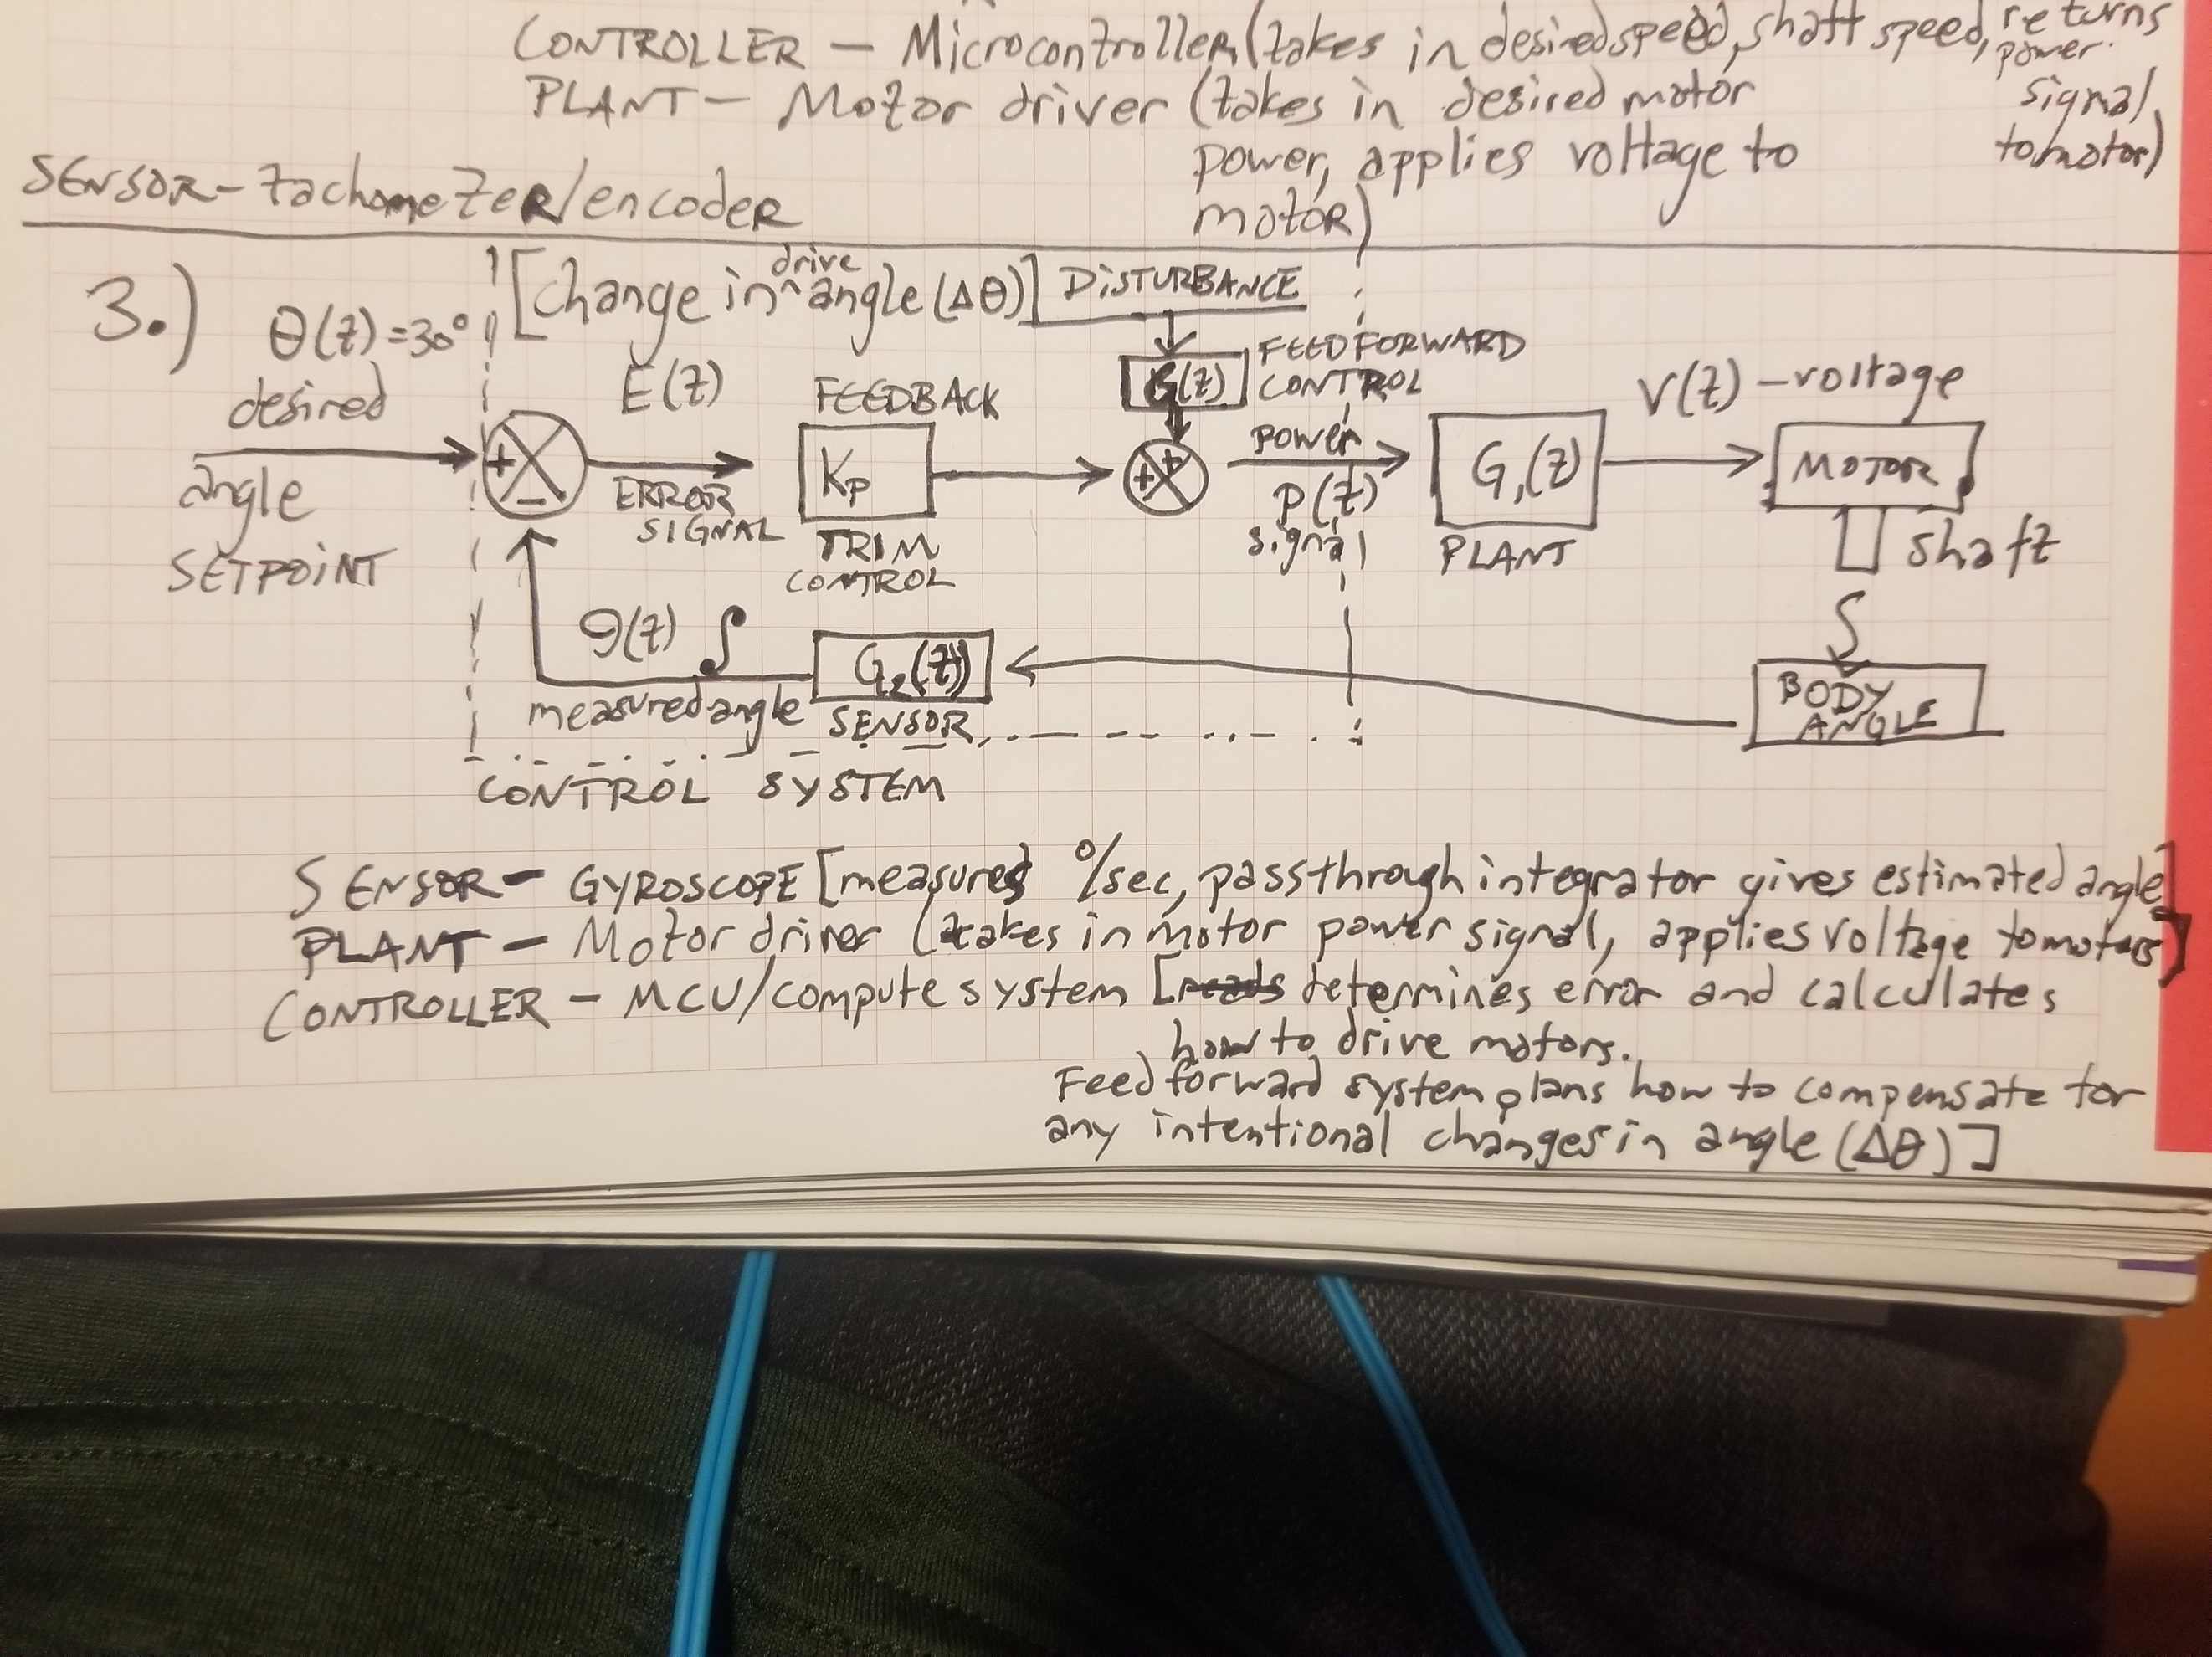 CONTROLLER — Microcontroller (takes in desired speed, shaft speed, returns
power
signal,
to motor)
PLANT — Motor driver (takes in desired motor
power, applies voltage to
motor)
SENSOR - tachometer/encoder
3.)
[change in drive angle (Δθ)] DISTURBANCE
θ(t) = 30°
desired
angle
SETPOINT
+
−
E(t)
ERROR
SIGNAL
FEEDBACK
Kp
TRIM
CONTROL
G(t)
FEEDFORWARD
CONTROL
+
+
power
p(t)
signal
G₁(t)
PLANT
V(t) - voltage
MOTOR
shaft
∫
BODY
ANGLE
G₂(t)
SENSOR
θ(t) ∫
measured angle
CONTROL SYSTEM
SENSOR - GYROSCOPE [measures °/sec, pass through integrator gives estimated angle]
PLANT - Motor driver (takes in motor power signal, applies voltage to motors)
CONTROLLER - MCU/compute system [reads determines error and calculates
how to drive motors.
Feed forward system plans how to compensate for
any intentional changes in angle (Δθ)]